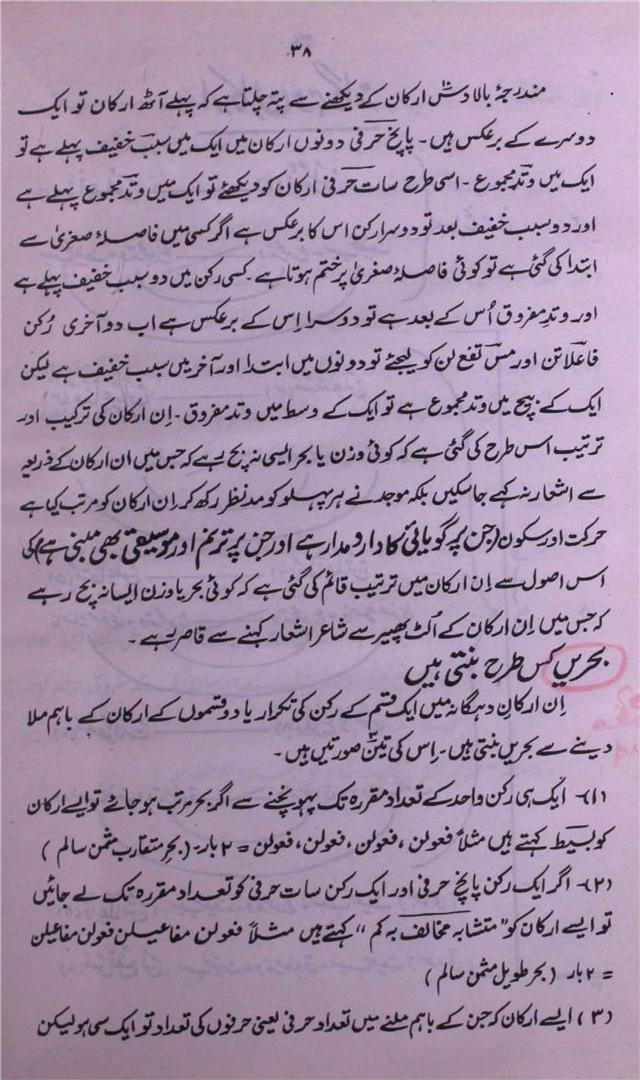 ۳۸
مندرجۂ بالا دس ارکان کے دیکھنے سے پتہ چلتا ہے کہ پہلے آٹھ ارکان تو ایک
دوسرے کے برعکس ہیں۔ پانچ حرفی دونوں ارکان میں ایک میں سبب خفیف پہلے ہے تو
ایک میں وتد مجموع۔ اسی طرح سات حرفی ارکان کو دیکھئے تو ایک میں وتد مجموع پہلے ہے
اور دو سبب خفیف بعد تو دوسرا رکن اس کا برعکس ہے اگر کسی میں فاصلۂ صغریٰ سے
ابتدا کی گئی ہے تو کوئی فاصلۂ صغریٰ پر ختم ہوتا ہے۔ کسی رکن میں دو سبب خفیف پہلے ہے
اور وتدِ مفروق اُس کے بعد ہے تو دوسرا اِس کے برعکس ہے اب دو آخری رُکن
فاعلاتن اور مس تفع لن کو لیجئے تو دونوں میں ابتدا اور آخر میں سبب خفیف ہے لیکن
ایک کے بیچ میں وتد مجموع ہے تو ایک کے وسط میں وتد مفروق۔ اِن ارکان کی ترکیب اور
ترتیب اس طرح کی گئی ہے کہ کوئی وزن یا بحر ایسی نہ بچ سکے جس میں ان ارکان کے ذریعہ
سے اشعار نہ کہے جا سکیں بلکہ موجد نے ہر پہلو کو مدنظر رکھ کر اِن ارکان کو مرتب کیا ہے
حرکت اور سکون (جن پر گویائی کا دارومدار ہے اور جن پر ترنم اور موسیقی بھی مبنی ہے) کی
اس اصول سے اِن ارکان میں ترتیب قائم کی گئی ہے کہ کوئی بحر یا وزن ایسا نہ بچ رہے
کہ جس میں اِن ارکان کے اُلٹ پھیر سے شاعر اشعار کہنے سے قاصر رہے۔
بحریں کس طرح بنتی ہیں
اِن ارکانِ دہگانہ میں ایک قسم کے رکن کی تکرار یا دو قسموں کے ارکان کے باہم ملا
دینے سے بحریں بنتی ہیں۔ اِس کی تین صورتیں ہیں۔
(۱)۔ ایک ہی رکن واحد کے تعداد مقررہ تک پہونچنے سے اگر بحر مرتب ہو جائے تو ایسے ارکان
کو بسیط کہتے ہیں مثلاً فعولن، فعولن، فعولن، فعولن = ۲ بار۔ (بحرِ متقارب مثمن سالم)
(۲)۔ اگر ایک رکن پانچ حرفی اور ایک رکن سات حرفی کو تعداد مقررہ تک لے جائیں
تو ایسے ارکان کو "متشابہ مخالف بہ کم" کہتے ہیں مثلاً فعولن مفاعیلن فعولن مفاعیلن
= ۲ بار (بحر طویل مثمن سالم)
(۳) ایسے ارکان کہ جن کے باہم ملنے میں تعداد حرفی یعنی حرفوں کی تعداد تو ایک سی ہو لیکن